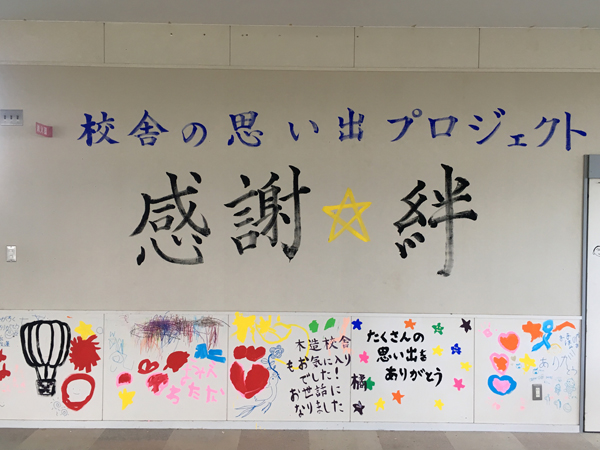 校舎の思い出プロジェクト
感謝☆絆
木造校舎
もお気に入り
でした!
お世話に
なりました
たくさんの
思い出を
ありがとう
橘